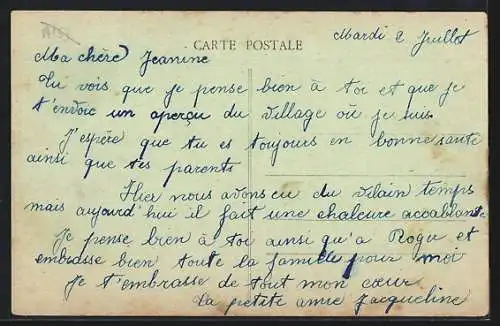 CARTE POSTALE
Mardi 2 Juillet
Ma chère Jeanine
Tu vois que je pense bien à toi et que je
t'envoie un aperçu du village où je suis.
J'espère que tu es toujours en bonne santé
ainsi que tes parents
Hier nous avons eu du vilain temps
mais aujourd'hui il fait une chaleure accablante
Je pense bien à toi ainsi qu'à Rogu et
embrasse bien toute la famille pour moi
Je t'embrasse de tout mon cœur
ta petite amie Jacqueline